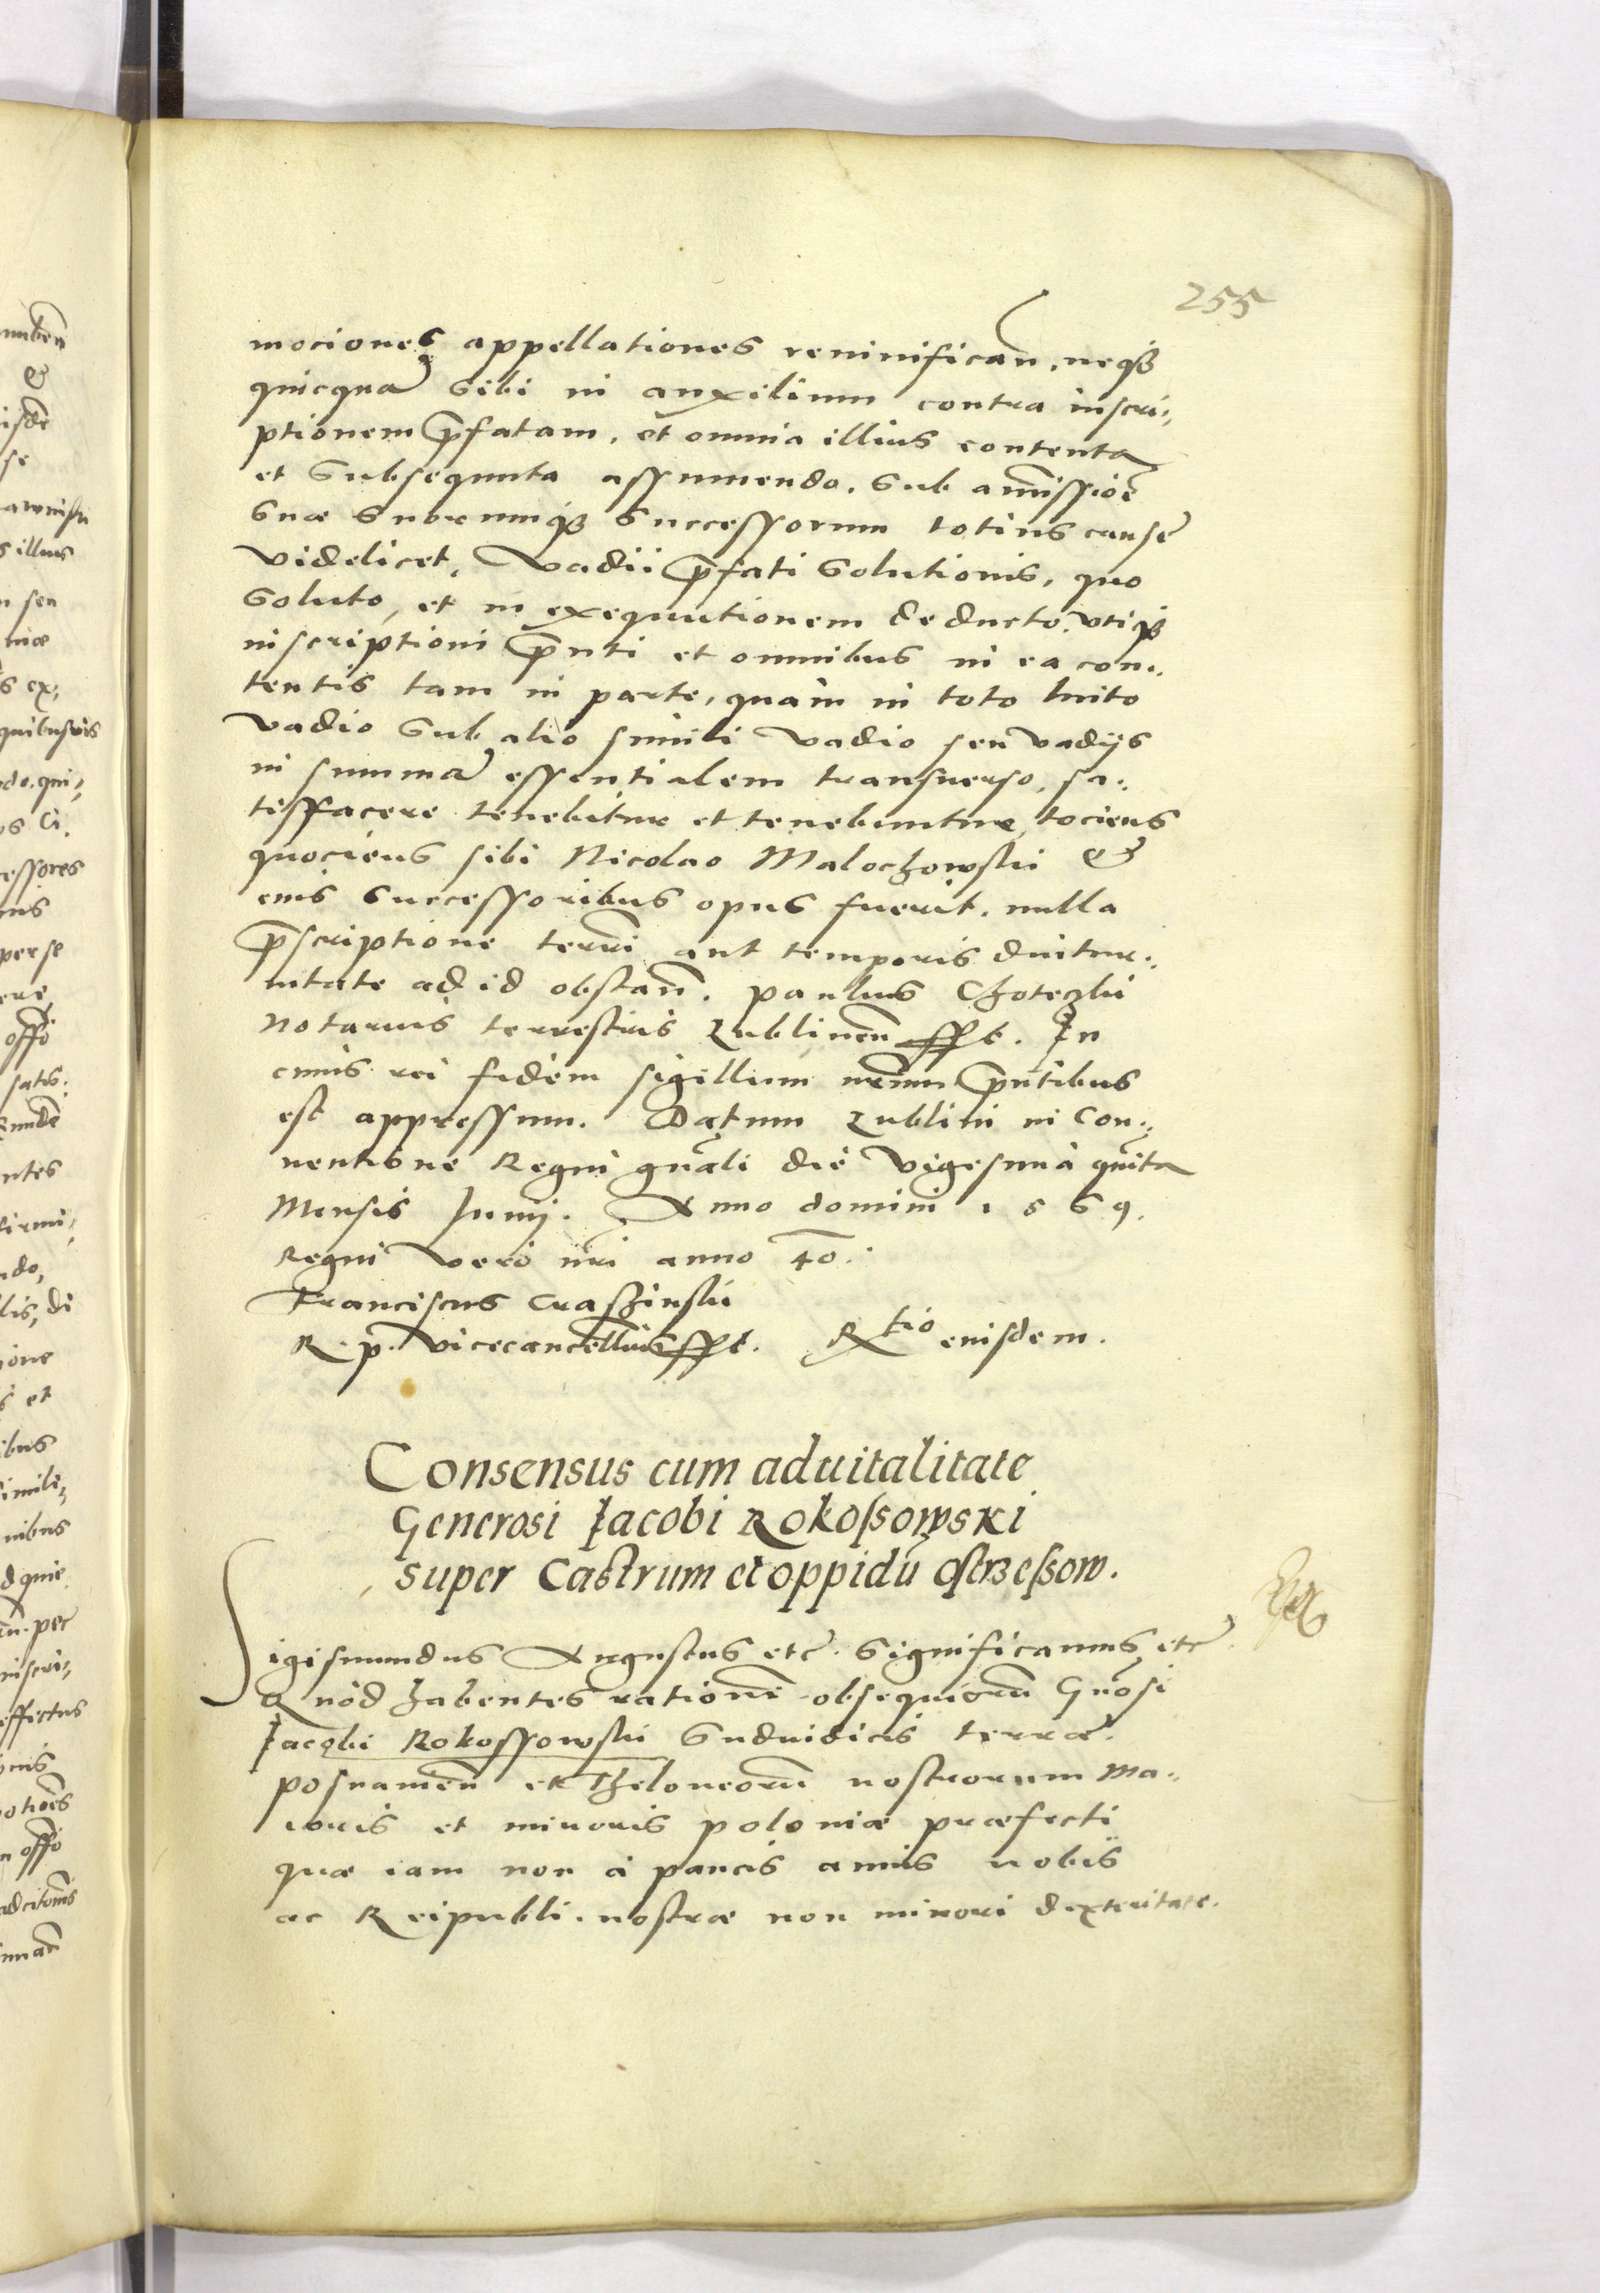 255
mociones appellationes reinifican̄. neqꝫ
quicquā sibi in auxilium contra inscri⸗
ptionem p̄fatam, et omnia illius contenta
et subsequuta assumendo. sub amissioē
suæ suorumqꝫ successorum totius causæ
videlicet, vadii p̄fati solutionis, quo
soluto, et in exequutionem deducto. vtiqꝫ
inscriptioni p̄nti et omnibus in ea con⸗
tentis tam in parte, quam in toto luito
vadio sub alio simili vadio seu vadijs
in summā essentialem transuerso, sa⸗
tisfacere tenebitur et tenebuntur, tociens
quociens sibi Nicolao Malochowski &
eius successoribus opus fuerit. nulla
p̄scriptione terrī aut temporis diutur⸗
nitate ad id obstan̄. Paulus Choteczki
Notarius terrestris Lublinen̄ sspt. In
cuius rei fidem sigillum nr̄um p̄ntibus
est appressum. Datum Lublini in Con⸗
uentione Regni gn̄ali die vigesima quīta
Mensis Junij. Anno domini 1569.
Regni vero nr̄i anno 40.
Franciscus Craszinski
R. p. vicecancellarius sspt. Rtio eiusdem.
Consensus cum aduitalitate
Generosi Iacobi Rokossowski
super Castrum et oppidū Ostrzeszow.
Sigismundus Augustus etc. Significamus etc
Quod habentes rationem obsequiorū Gn̄osi
Jacobi Rokossowski Subiudicis terræ
posnanien̄ et Theloneorū nostrorum Ma⸗
ioris et minoris poloniæ præfecti
quæ iam non à paucis annis nobis
ac Reipubli. nostræ non minori dexteritate.